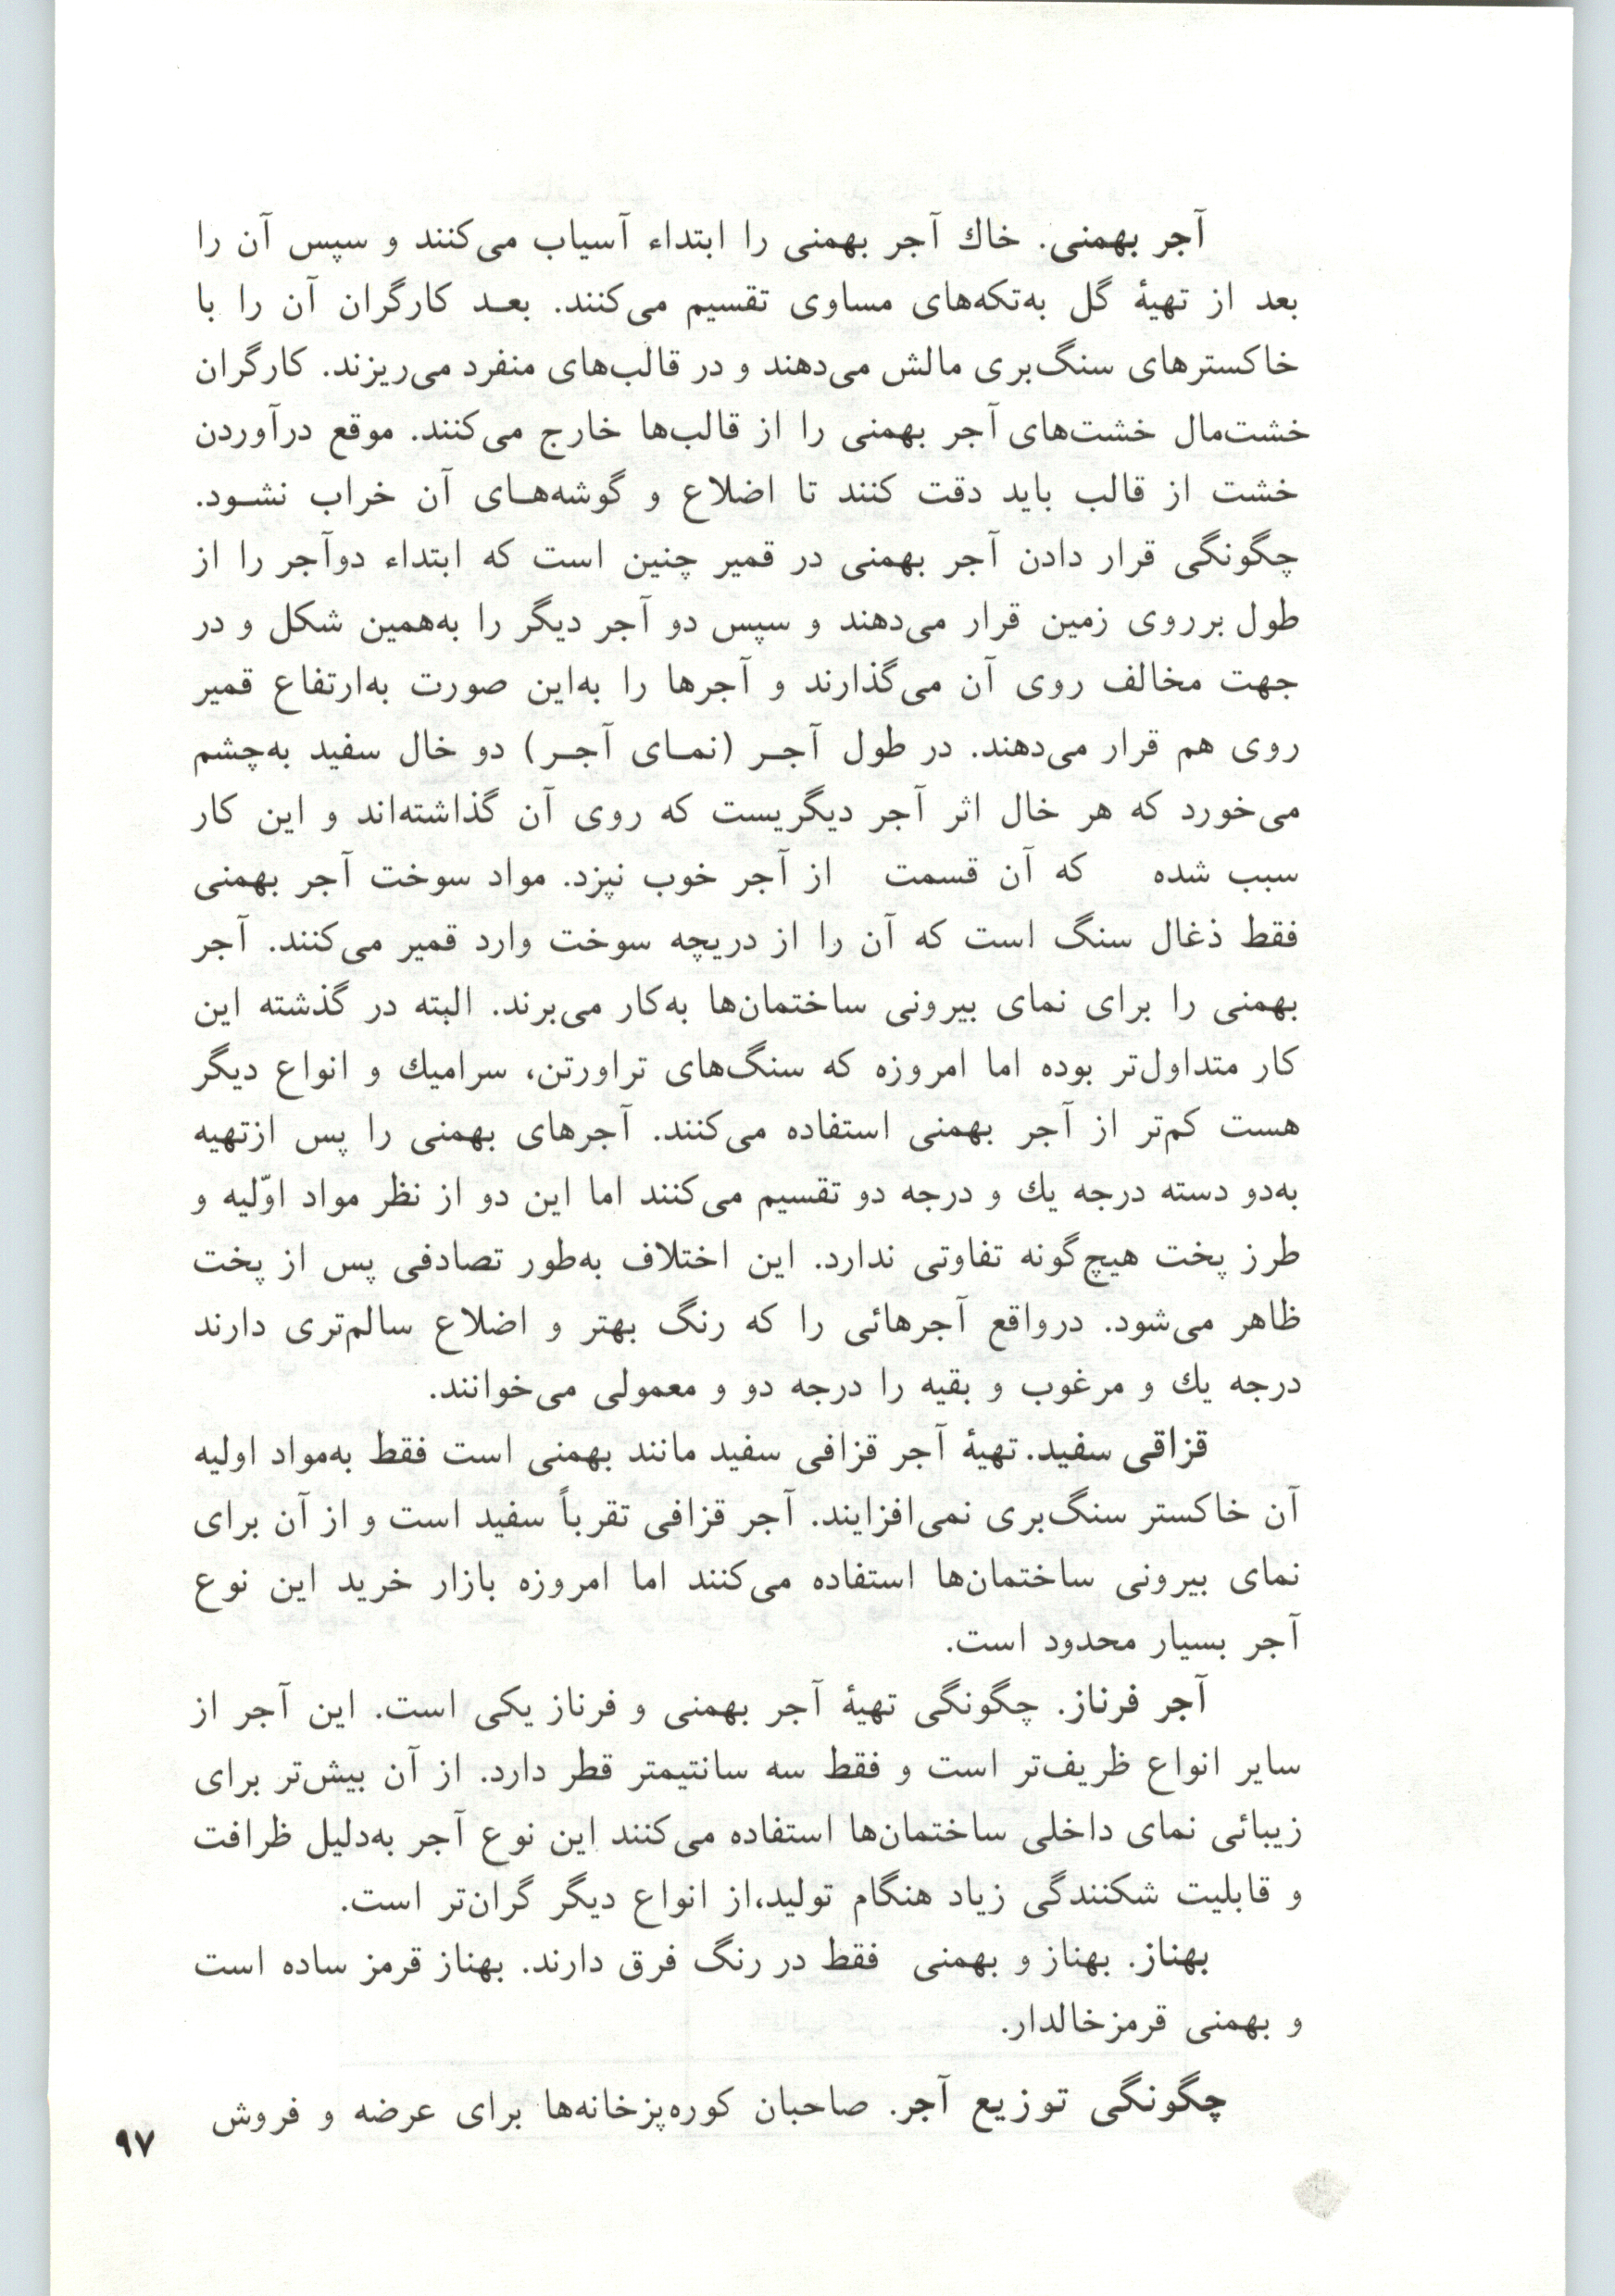 آجر بهمنی. خاك آجر بهمنی را ابتداء آسیاب می‌کنند و سپس آن را
بعد از تهیهٔ گل به‌تکه‌های مساوی تقسیم می‌کنند. بعـد کارگران آن را با
خاکسترهای سنگ‌بری مالش می‌دهند و در قالب‌های منفرد می‌ریزند. کارگران
خشت‌مال خشت‌های آجر بهمنی را از قالب‌ها خارج می‌کنند. موقع درآوردن
خشت از قالب باید دقت کنند تا اضلاع و گوشه‌هـای آن خراب نشـود.
چگونگی قرار دادن آجر بهمنی در قمیر چنین است که ابتداء دوآجر را از
طول برروی زمین قرار می‌دهند و سپس دو آجر دیگر را به‌همین شکل و در
جهت مخالف روی آن می‌گذارند و آجرها را به‌این صورت به‌ارتفاع قمیر
روی هم قرار می‌دهند. در طول آجـر (نمـای آجـر) دو خال سفید به‌چشم
می‌خورد که هر خال اثر آجر دیگریست که روی آن گذاشته‌اند و این کار
سبب شده که آن قسمت از آجر خوب نپزد. مواد سوخت آجر بهمنی
فقط ذغال سنگ است که آن را از دریچه سوخت وارد قمیر می‌کنند. آجر
بهمنی را برای نمای بیرونی ساختمان‌ها به‌کار می‌برند. البته در گذشته این
کار متداول‌تر بوده اما امروزه که سنگ‌های تراورتن، سرامیك و انواع دیگر
هست کم‌تر از آجر بهمنی استفاده می‌کنند. آجرهای بهمنی را پس ازتهیه
به‌دو دسته درجه یك و درجه دو تقسیم می‌کنند اما این دو از نظر مواد اوّلیه و
طرز پخت هیچ‌گونه تفاوتی ندارد. این اختلاف به‌طور تصادفی پس از پخت
ظاهر می‌شود. درواقع آجرهائی را که رنگ بهتر و اضلاع سالم‌تری دارند
درجه یك و مرغوب و بقیه را درجه دو و معمولی می‌خوانند.
قزاقی سفید. تهیهٔ آجر قزافی سفید مانند بهمنی است فقط به‌مواد اولیه
آن خاکستر سنگ‌بری نمی‌افزایند. آجر قزافی تقرباً سفید است و از آن برای
نمای بیرونی ساختمان‌ها استفاده می‌کنند اما امروزه بازار خرید این نوع
آجر بسیار محدود است.
آجر فرناز. چگونگی تهیهٔ آجر بهمنی و فرناز یکی است. این آجر از
سایر انواع ظریف‌تر است و فقط سه سانتیمتر قطر دارد. از آن بیش‌تر برای
زیبائی نمای داخلی ساختمان‌ها استفاده می‌کنند این نوع آجر به‌دلیل ظرافت
و قابلیت شکنندگی زیاد هنگام تولید،از انواع دیگر گران‌تر است.
بهناز. بهناز و بهمنی فقط در رنگ فرق دارند. بهناز قرمز ساده است
و بهمنی قرمزخالدار.
چگونگی توزیع آجر. صاحبان کوره‌پزخانه‌ها برای عرضه و فروش
۹۷